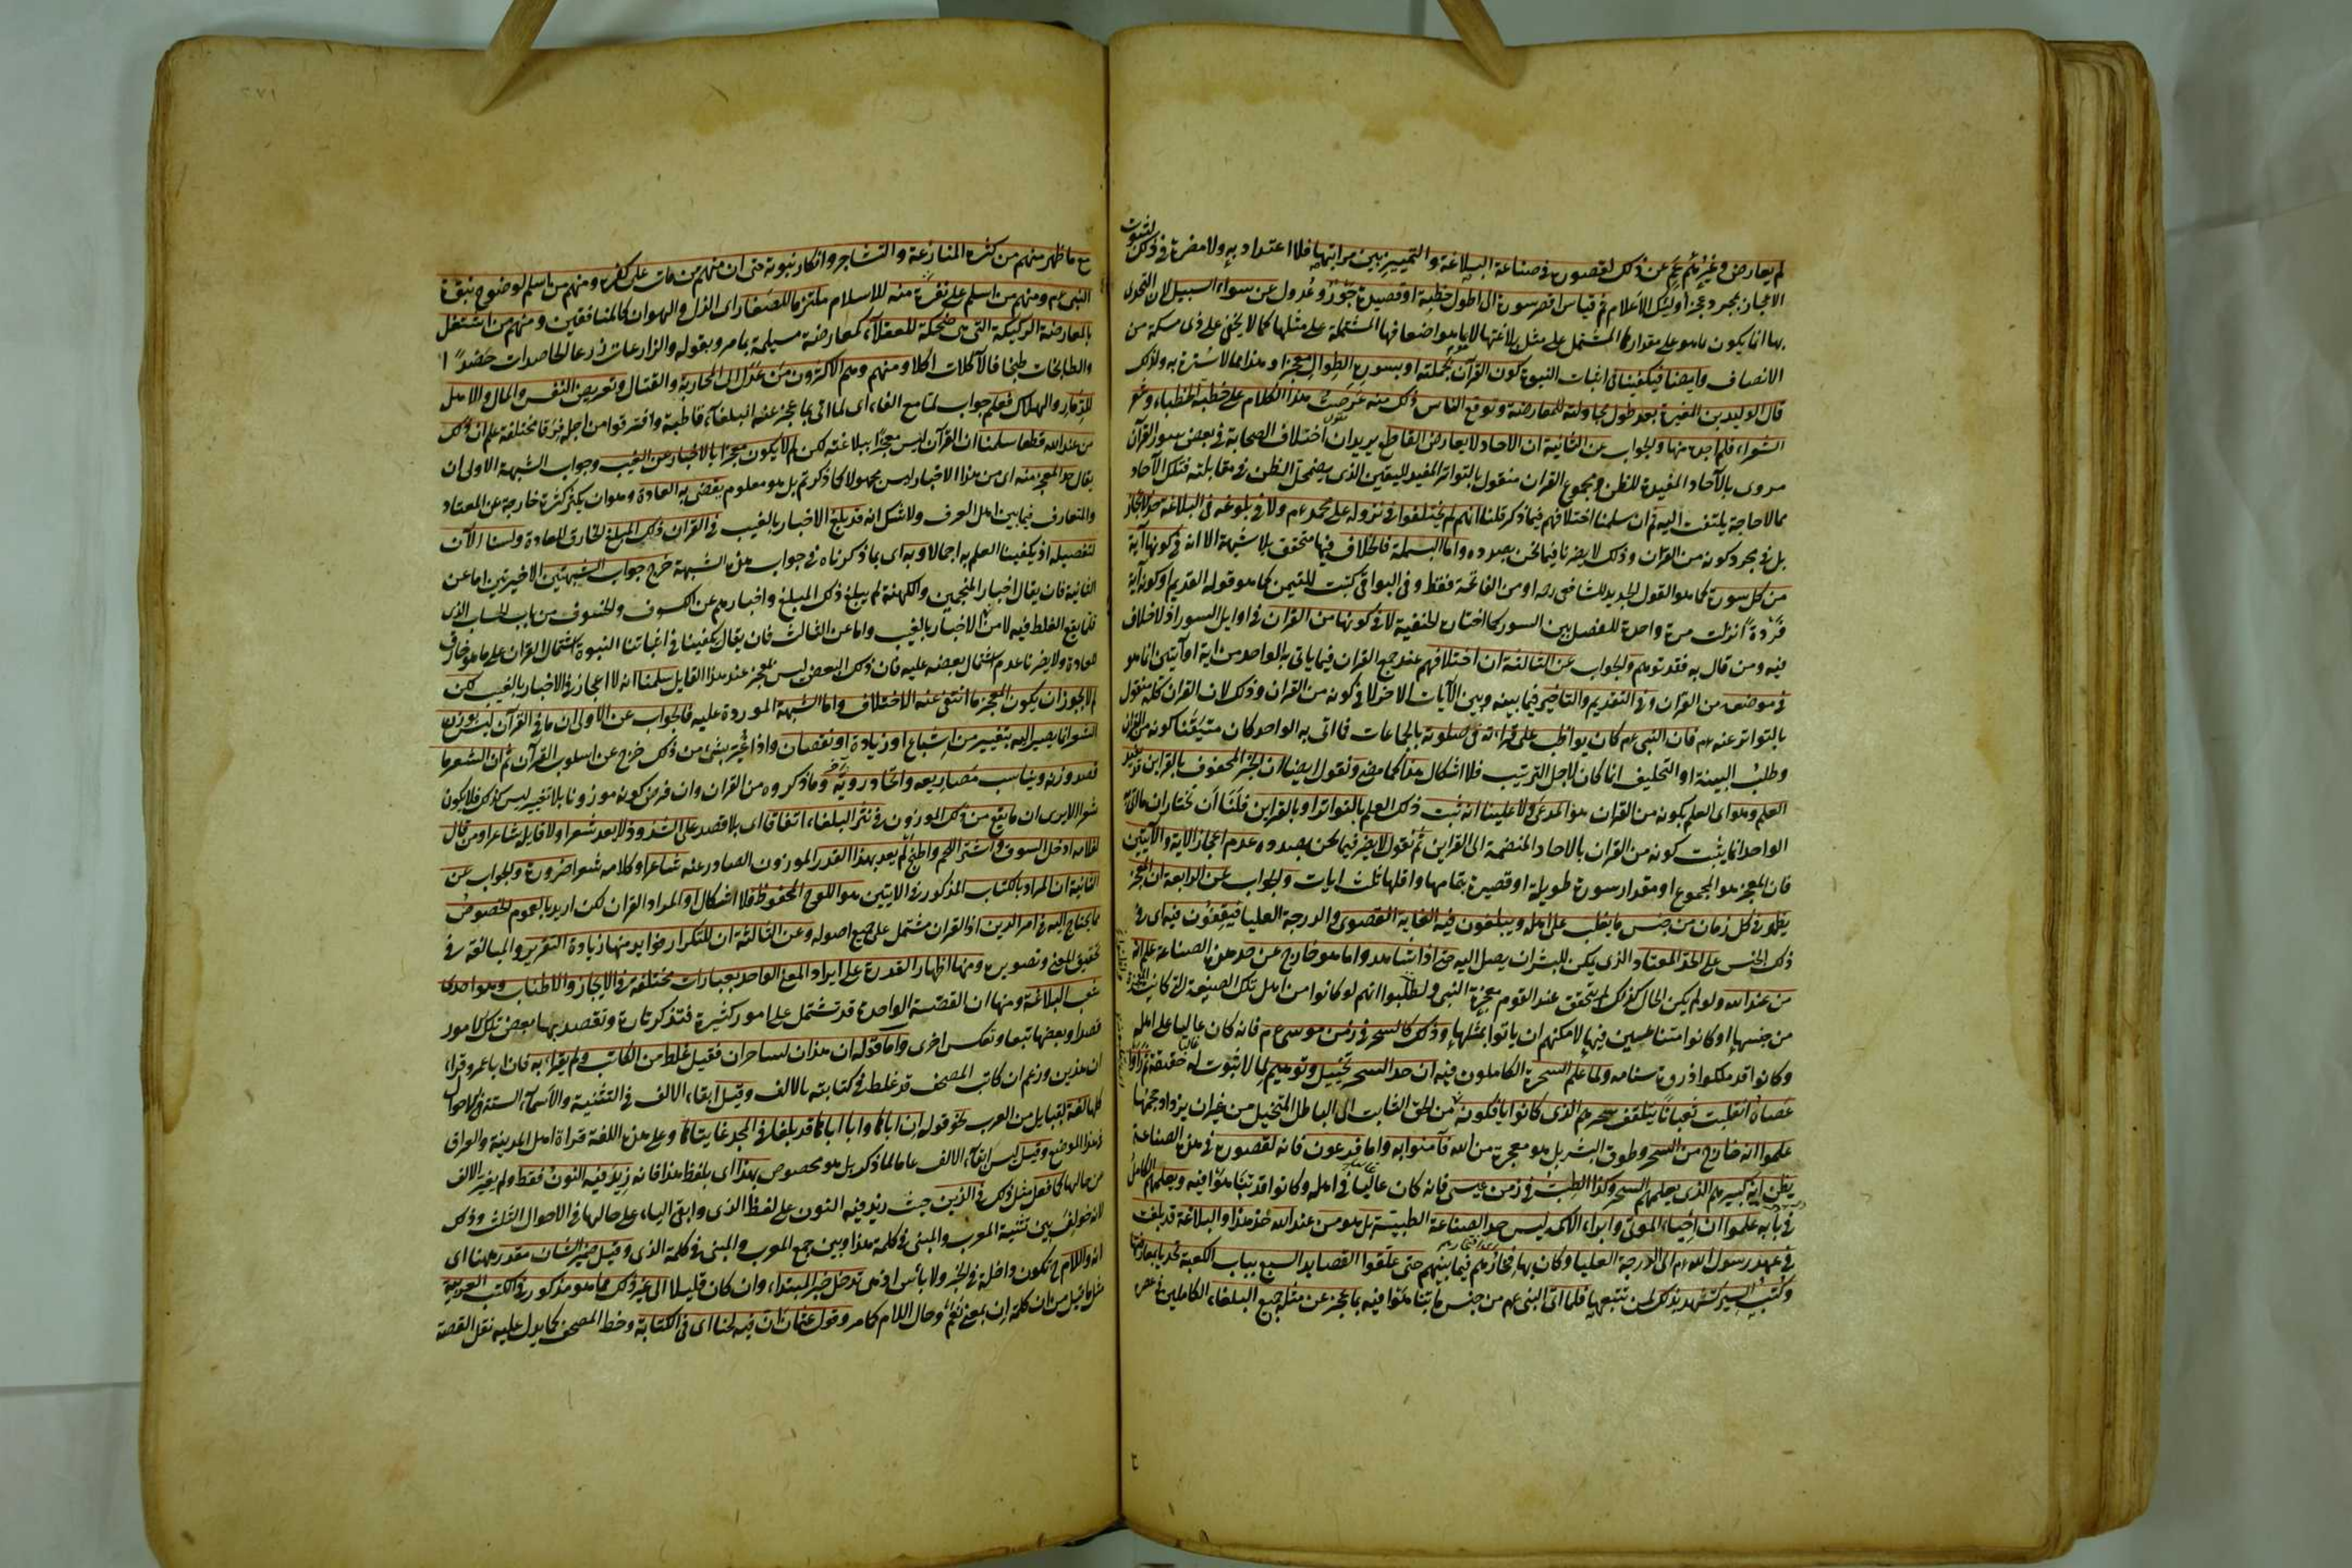 لم يعارض وغيرهم عجز عن ذلك لقصوره في صناعة البلاغة والتمييز بين مراتبها فلا اعتداد به ولا مضرة في ذلك لثبوت
الاعجاز بمجرد عجز أوليك الاعلام ثم قياس اقصر سورة الى اطول خطبة او قصيدة جور وعدول عن سواء السبيل لان التحدى
بها انما يكون بما هو على مقدارها المشتمل على مثل بلاغتها لا بما هو اضعافها المشتملة على مثلها كما لا يخفى على ذى مسكة من
الانصاف وايضا فيكفينا في اثبات النبوة كون القرآن بجملته او بسوره الطوال معجزا وهذا مما لا سترة به ولذلك
قال الوليد بن المغيرة بعد طول محاولته للمعارضة وتوقع الناس ذلك منه عرضت هذا الكلام على خطب الخطباء وشعر
الشعراء فلم اجده منها والجواب عن الثانية ان الاحاد لا يعارض القاطع يريد ان اختلاف الصحابة في بعض سور القرآن
مروى بالآحاد المفيدة للظن ومجموع القران منقول بالتواتر المفيد لليقين الذى يضمحل الظن في مقابلته فتلك الآحاد
مما لا حاجة يلتفت اليه ثم ان سلمنا اختلافهم فيما ذكر قلنا انهم لم يختلفوا في نزوله على محمد عم ولا في بلوغه في البلاغة حد الاعجاز
بل في مجرد كونه من القران وذلك لا يضرنا فيما نحن بصدده واما البسملة فالخلاف فيها متحقق بلا شبهة الا انه في كونها آية
من كل سورة كما هو القول الجديد للشافعى رحه او من الفاتحة فقط وفي البواقى كتبت للتيمن كما هو قوله القديم او كونها آية
فردة انزلت مرة واحدة للفصل بين السور كما اختاره الحنفية لا في كونها من القران في اوايل السور اذ لا خلاف
فيه ومن قال به فقد توهم والجواب عن الثالثة ان اختلافهم عند جمع القران فيما ياتى به الواحد من اية او آيتين انما هو
في موضعه من القران وفي التقديم والتاخير فيما بينه وبين الآيات الاخر لا في كونه من القران وذلك لان القران كله منقول
بالتواتر عنه عم فان النبى عم كان يواظب على قراءته في صلوته بالجماعات فما اتى به الواحد كان متيقنا كونه من القران
وطلب البينة او التحليف انما كان لاجل الترتيب فلا اشكال هذا كما مضى ونقول ايضا لان الخبر المحفوف بالقراين قد يفيد
العلم وهو اى العلم بكونه من القران هو المدعى ولا علينا انه ثبت ذلك العلم بالتواتر او بالقراين فلنا ان نختار ان ما اتى به
الواحد انما يثبت كونه من القران بالاحاد المنضمة الى القراين ثم نقول لا يضر فيما نحن بصدده عدم اعجاز الآية والآيتين
فان المعجز هو المجموع او مقدار سورة طويلة او قصيرة بتمامها واقلها ثلث ايات والجواب عن الرابعة ان المعجز
يظهر في كل زمان من جنس ما يغلب على اهله ويبلغون فيه الغاية القصوى والدرجة العليا فيقفون فيه اى في
ذلك الجنس على الحد المعتاد الذى يمكن للبشر ان يصل اليه حتى اذا شاهدوا ما هو خارج عن حد هذه الصناعة علم انه
من عند الله ولو لم يكن الحال كذلك لم يتحقق عند القوم معجزة النبى ولظنوا انهم لو كانوا من اهل تلك الصنيعة التى كانت المعجزة
من جنسها او كانوا متناهين فيها لامكنهم ان ياتوا بمثلها وذلك كالسحر في زمن موسى عم فانه كان غالبا على اهله
وكانوا قد ملكوا ذروة سنامه ولما علم السحرة الكاملون فيه ان حد السحر تخييل وتوهيم لما لا ثبوت له حقيقة ثم رأوا
عصاه انقلبت ثعبانا يتلقف سحرهم الذى كانوا يافكونه من الحق الثابت الى الباطل المتخيل من غير ان يزداد حجمها
علموا انه خارج من السحر وطوق البشر بل هو معجزة من الله فآمنوا به واما فرعون فانه لقصوره في هذه الصناعة
يظن انه كبيرهم الذى يعلمهم السحر وكذا الطب في زمن عيسى فانه كان غالبا في اهله وكانوا قد تناهوا فيه وبعلمهم الكامل
في بابه علموا ان احياء الموتى وابراء الاكمه ليس حد الصناعة الطبية بل هو من عند الله هذا والبلاغة قد بلغت
في عهد رسول الله عم الى الدرجة العليا وكان بها فخارهم فيما بينهم حتى علقوا القصايد السبع بباب الكعبة تحديا بمعارضتها
وكتب السير تشهد بذلك لمن تتبعها فلما اتى النبى عم من جنس ما تناهوا فيه بما عجز عن مثله جميع البلغاء الكاملين في عصره
٢٧١
مع ما ظهر منهم من كثرة المنازعة والتشاجر وانكار نبوته حتى ان منهم من مات على كفره ومنهم من اسلم لوضوح نبوة
النبى عم ومنهم من اسلم على نفرة منه للاسلام ملتزما للصغار اى الذل والهوان كالمنافقين ومنهم من اشتغل
بالمعارضة الركيكة التى هى ضحكة للعقلاء كمعارضة مسيلمة بما مر وبقوله والزارعات زرعا فالحاصدات حصدا
والطابخات طبخا فالآكلات اكلا ومنهم وهم الاكثرون من عدل الى المحاربة والقتال وتعريض النفس والمال والاهل
للدمار والهلاك فعلم جواب لما مع الفاء اى لما اتى بما عجز عنه البلغاء قاطبة وافترقوا من اجله فرقا مختلفة علم ان ذلك
من عند الله قطعا سلمنا ان القرآن ليس معجزا ببلاغته لكن لم لا يكون معجزا بالاخبار عن الغيب وجواب الشبهة الاولى ان
يقال حد المعجز منه اى من هذا الاخبار ليس مجهولا كما ذكرتم بل هو معلوم يقضى به العادة وهو ان يكثر كثرة خارجة عن المعتاد
والمتعارف فيما بين اهل العرف ولا شك انه قد بلغ الاخبار بالغيب في القران ذلك المبلغ الخارق للعادة ولسنا الآن
لتفصيله اذ يكفينا العلم به اجمالا وبه اى بما ذكرناه في جواب هذه الشبهة خرج جواب الشبهتين الاخيرتين اما عن
الثانية فان يقال اخبار المنجمين والكهنة لم يبلغ ذلك المبلغ واخبارهم عن الكسوف والخسوف من باب الحساب الذى
قلما يقع الغلط فيه لا من الاخبار بالغيب واما عن الثالث فان يقال يكفينا في اثباتنا النبوة اشتمال القران على ما هو خارق
للعادة ولا يضرنا عدم اشتمال بعضه عليه فان ذلك البعض ليس بمعجز عند هذا القايل سلمنا انه لا اعجاز في الاخبار بالغيب لكن
لم لا يجوز ان يكون المعجز ما انتفى عنه الاختلاف واما الشبهة الموردة عليه فالجواب عن الاولى ان ما في القرآن ليس بوزن
الشعر انما يصير اليه بتغيير من اشباع او زيادة او نقصان واذا غير بشىء من ذلك خرج عن اسلوب القرآن ثم ان الشعر ما
قصد وزنه وتناسب مصاريعه واتحاد رويه وما ذكروه من القران وان فرض كونه موزونا بلا تغيير ليس كذلك فلا يكون
شعرا الا يرى ان ما يقع من ذلك الموزون في نثر البلغاء اتفاقا اى بلا قصد على الشذوذ لا يعد شعرا ولا قايله شاعرا ومن قال
لغلامه ادخل السوق واشتر اللحم واطبخ لم يعد بهذا القدر الموزون الصادر عنه شاعرا وكلامه شعرا ضرورة والجواب عن
الثانية ان المراد بالكتاب المذكور في الايتين هو اللوح المحفوظ فلا اشكال او المراد القران لكن اريد بالعموم الخصوص
مما يحتاج اليه في امر الدين اذ القران مشتمل على جميع اصوله وعن الثالثة ان للتكرار فوايد منها زيادة التقرير والمبالغة في
تحقيق المعنى وتصويره ومنها اظهار القدرة على ايراد المعنى الواحد بعبارات مختلفة في الايجاز والاطناب وهو احدى
شعب البلاغة ومنها ان القصة الواحدة قد تشتمل على امور كثيرة فتذكر تارة وتقصد بها بعض تلك الامور
قصدا وبعضها تبعا وتعكس اخرى واما قوله ان هذان لساحران فقيل غلط من الكاتب ولم يقرا به فان ابا عمرو قرا
ان هذين وزعم ان كاتب المصحف قد غلط في كتابته بالالف وقيل ابقاء الالف في التثنية والاسماء الستة في الاحوال
كلها لغة لقبايل من العرب نحو قوله ان اباها وابا اباها قد بلغا في المجد غايتاها وعلى هذه اللغة قراة اهل المدينة والعراق
في هذا الموضع وقيل ليس ابقاء الالف عاما لما ذكر بل هو مخصوص بهذا اى بلفظ هذا فانه زيد فيه النون فقط ولم يغير الالف
من حالها كما فعل مثل ذلك في الذين حيث زيد فيه النون على لفظ الذى وابقى الياء على حالها في الاحوال الثلث وذلك
لانه خولف بين تثنية المعرب والمبنى في كلمة هذا وبين جمع المعرب والمبنى في كلمة الذى وقيل ضمير الشان مقدر ههنا اى
انه واللام ح تكون داخلة في الخبر ولا باس اذ هى تدخل خبر المبتداء وان كان قليلا الى غير ذلك مما هو مذكور في الكتب العربية
مثل ما قيل من ان كلمة ان بمعنى نعم وحال اللام كما مر وقول عثمان ان فيه لحنا اى في الكتابة وخط المصحف كما يدل عليه نقل القصة